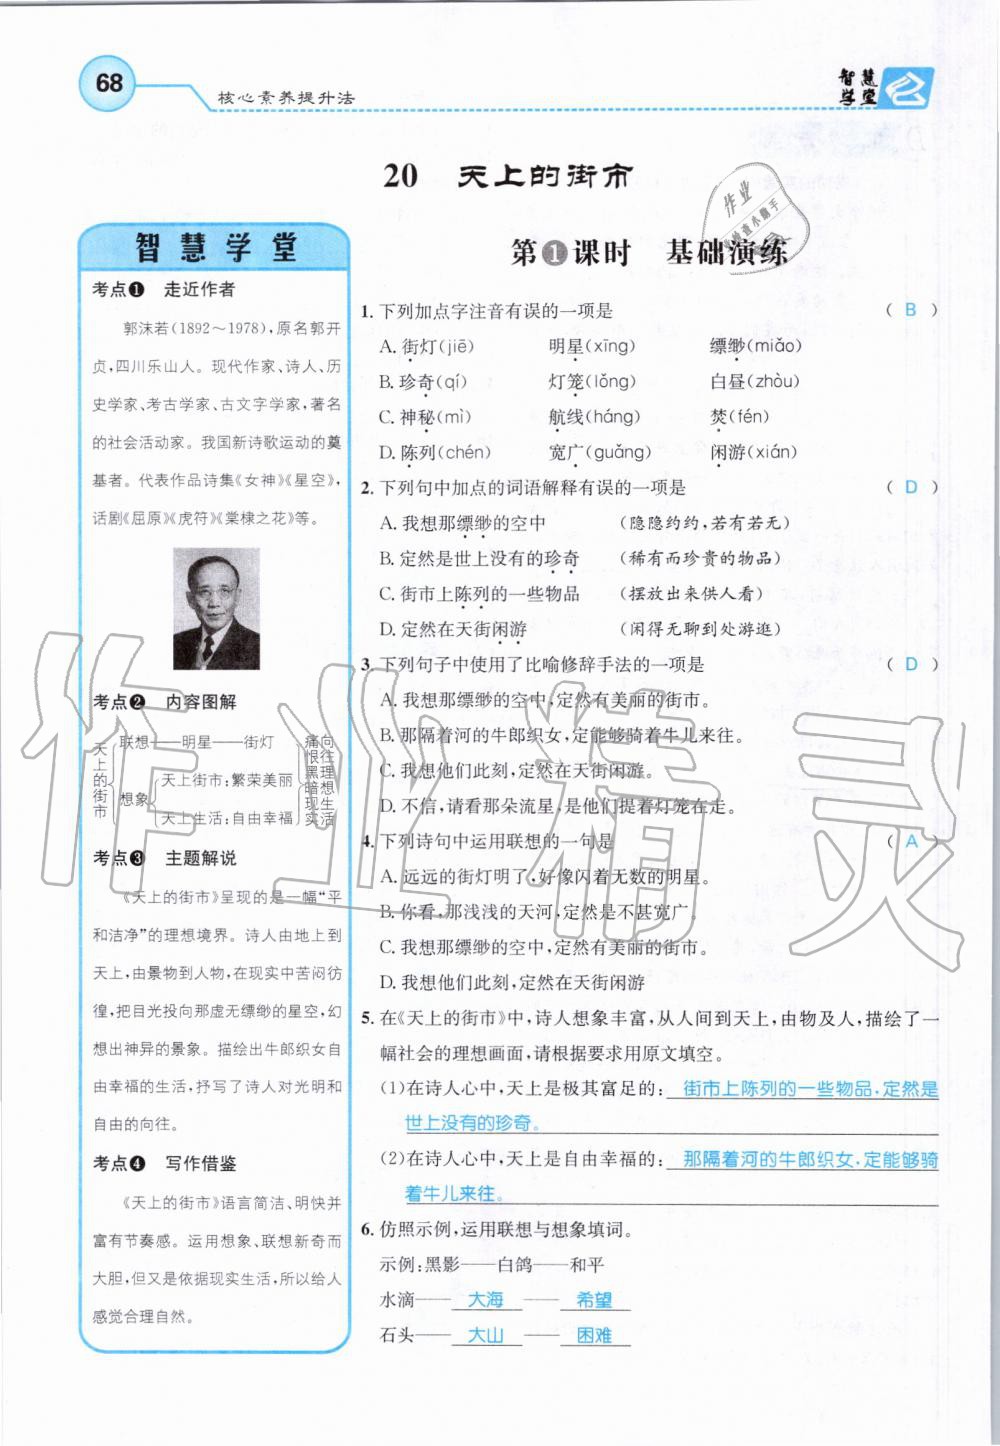 68
核心素养提升法
智慧学堂
20 天上的街市
第1课时 基础演练
智慧学堂
考点1 走近作者
郭沫若(1892～1978),原名郭开
贞,四川乐山人。现代作家、诗人、历
史学家、考古学家、古文字学家,著名
的社会活动家。我国新诗歌运动的奠
基者。代表作品诗集《女神》《星空》,
话剧《屈原》《虎符》《棠棣之花》等。
考点2 内容图解
天上的街市
联想——明星——街灯
想象
天上街市:繁荣美丽
天上生活:自由幸福
痛恨黑暗现实
向往理想生活
考点3 主题解说
《天上的街市》呈现的是一幅“平
和洁净”的理想境界。诗人由地上到
天上,由景物到人物,在现实中苦闷彷
徨,把目光投向那虚无缥缈的星空,幻
想出神异的景象。描绘出牛郎织女自
由幸福的生活,抒写了诗人对光明和
自由的向往。
考点4 写作借鉴
《天上的街市》语言简洁、明快并
富有节奏感。运用想象、联想新奇而
大胆,但又是依据现实生活,所以给人
感觉合理自然。
1. 下列加点字注音有误的一项是 ( B )
A. 街灯(jiē) 明星(xīng) 缥缈(miǎo)
B. 珍奇(qí) 灯笼(lǒng) 白昼(zhòu)
C. 神秘(mì) 航线(háng) 焚(fén)
D. 陈列(chén) 宽广(guǎng) 闲游(xián)
2. 下列句中加点的词语解释有误的一项是 ( D )
A. 我想那缥缈的空中 (隐隐约约,若有若无)
B. 定然是世上没有的珍奇 (稀有而珍贵的物品)
C. 街市上陈列的一些物品 (摆放出来供人看)
D. 定然在天街闲游 (闲得无聊到处游逛)
3. 下列句子中使用了比喻修辞手法的一项是 ( D )
A. 我想那缥缈的空中,定然有美丽的街市。
B. 那隔着河的牛郎织女,定能够骑着牛儿来往。
C. 我想他们此刻,定然在天街闲游。
D. 不信,请看那朵流星,是他们提着灯笼在走。
4. 下列诗句中运用联想的一句是 ( A )
A. 远远的街灯明了,好像闪着无数的明星。
B. 你看,那浅浅的天河,定然是不甚宽广。
C. 我想那缥缈的空中,定然有美丽的街市。
D. 我想他们此刻,定然在天街闲游
5. 在《天上的街市》中,诗人想象丰富,从人间到天上,由物及人,描绘了一
幅社会的理想画面,请根据要求用原文填空。
(1)在诗人心中,天上是极其富足的: 街市上陈列的一些物品,定然是
世上没有的珍奇。
(2)在诗人心中,天上是自由幸福的: 那隔着河的牛郎织女,定能够骑
着牛儿来往。
6. 仿照示例,运用联想与想象填词。
示例:黑影——白鸽——和平
水滴—— 大海 —— 希望
石头—— 大山 —— 困难
作业精灵
作业